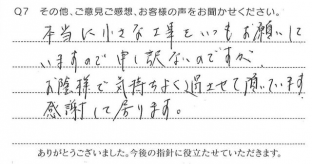 Q7 その他、ご意見ご感想、お客様の声をお聞かせください。
本当に小さな工事をいつもお願いして
いますので申し訳ないのですが、
お陰様で気持ちよく過させて頂いています
感謝して居ります。
ありがとうございました。今後の指針に役立たせていただきます。